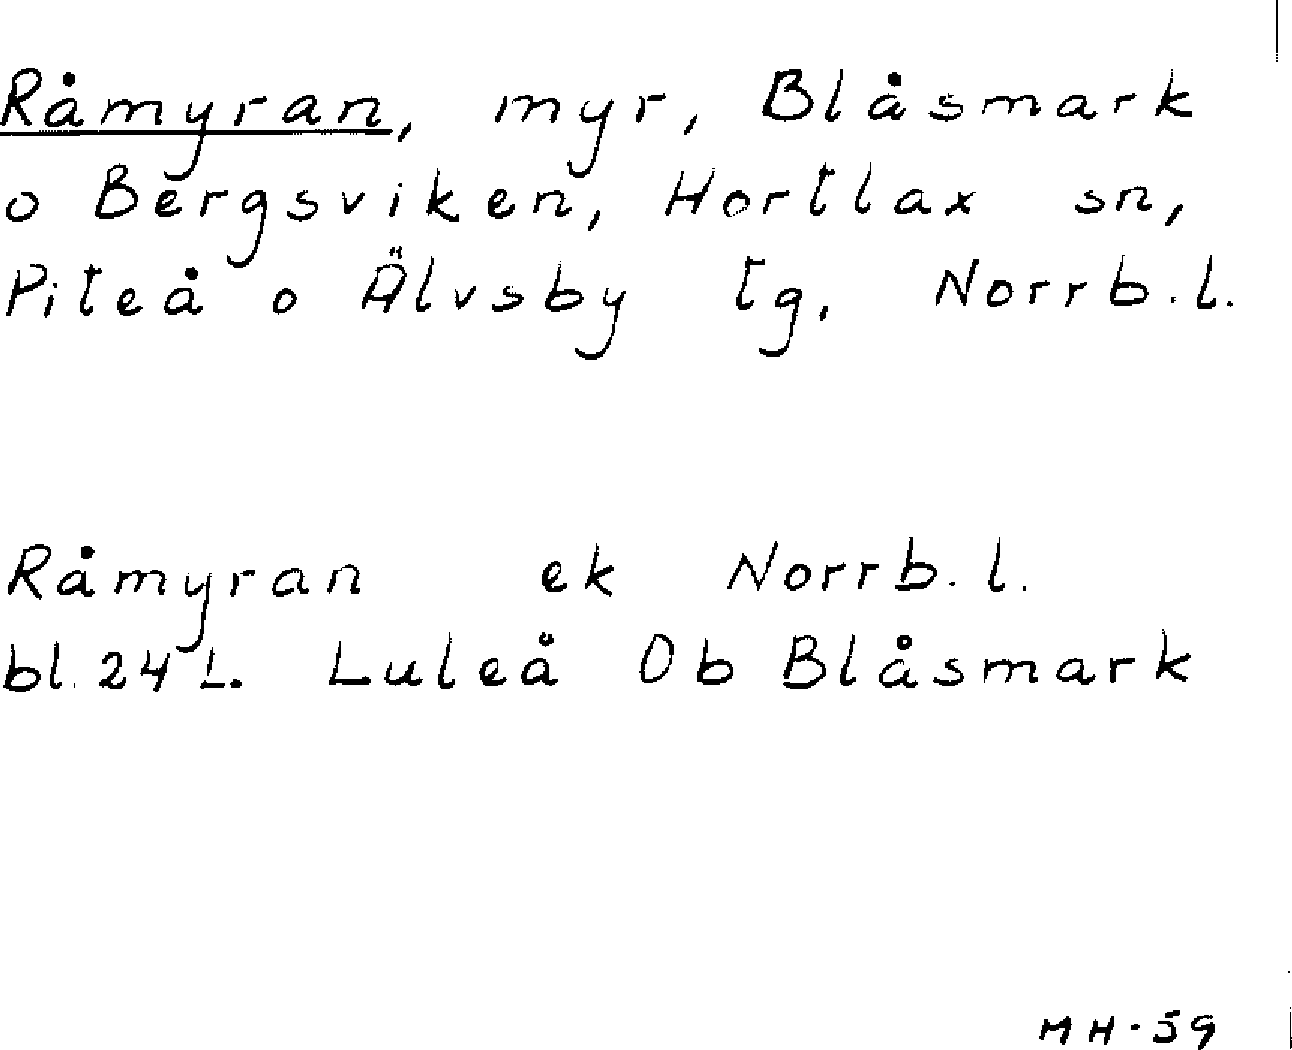 Råmyran, myr, Blåsmark
o Bergsviken, Hortlax sn,
Piteå o Älvsby tg, Norrb.l.
Råmyran ek Norrb.l.
bl.24 L. Luleå Ob Blåsmark
MH-59